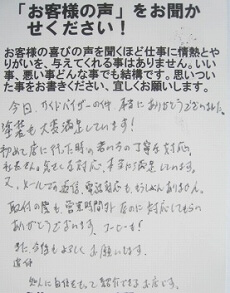 「お客様の声」をお聞か
せください！
お客様の喜びの声を聞くほど仕事に情熱とや
りがいを、与えてくれる事はありません。いい
事、悪い事どんな事でも結構です。思いつい
た事をお書きください、宜しくお願いします。
今回、サイドバイザーの件 本当にありがとうございました。
塗装も大変満足しています！
初めて店に行った時の君たちの丁寧な対応、
対応、本当に満足しています。
又、メールでの返信、電話対応も、もうしぶんありません。
取付の際も、営業時間外なのに対応してもらい
ありがとうございます。
また、今後もよろしくお願いします。
追伸
知人に自信をもって紹介できるお店です。